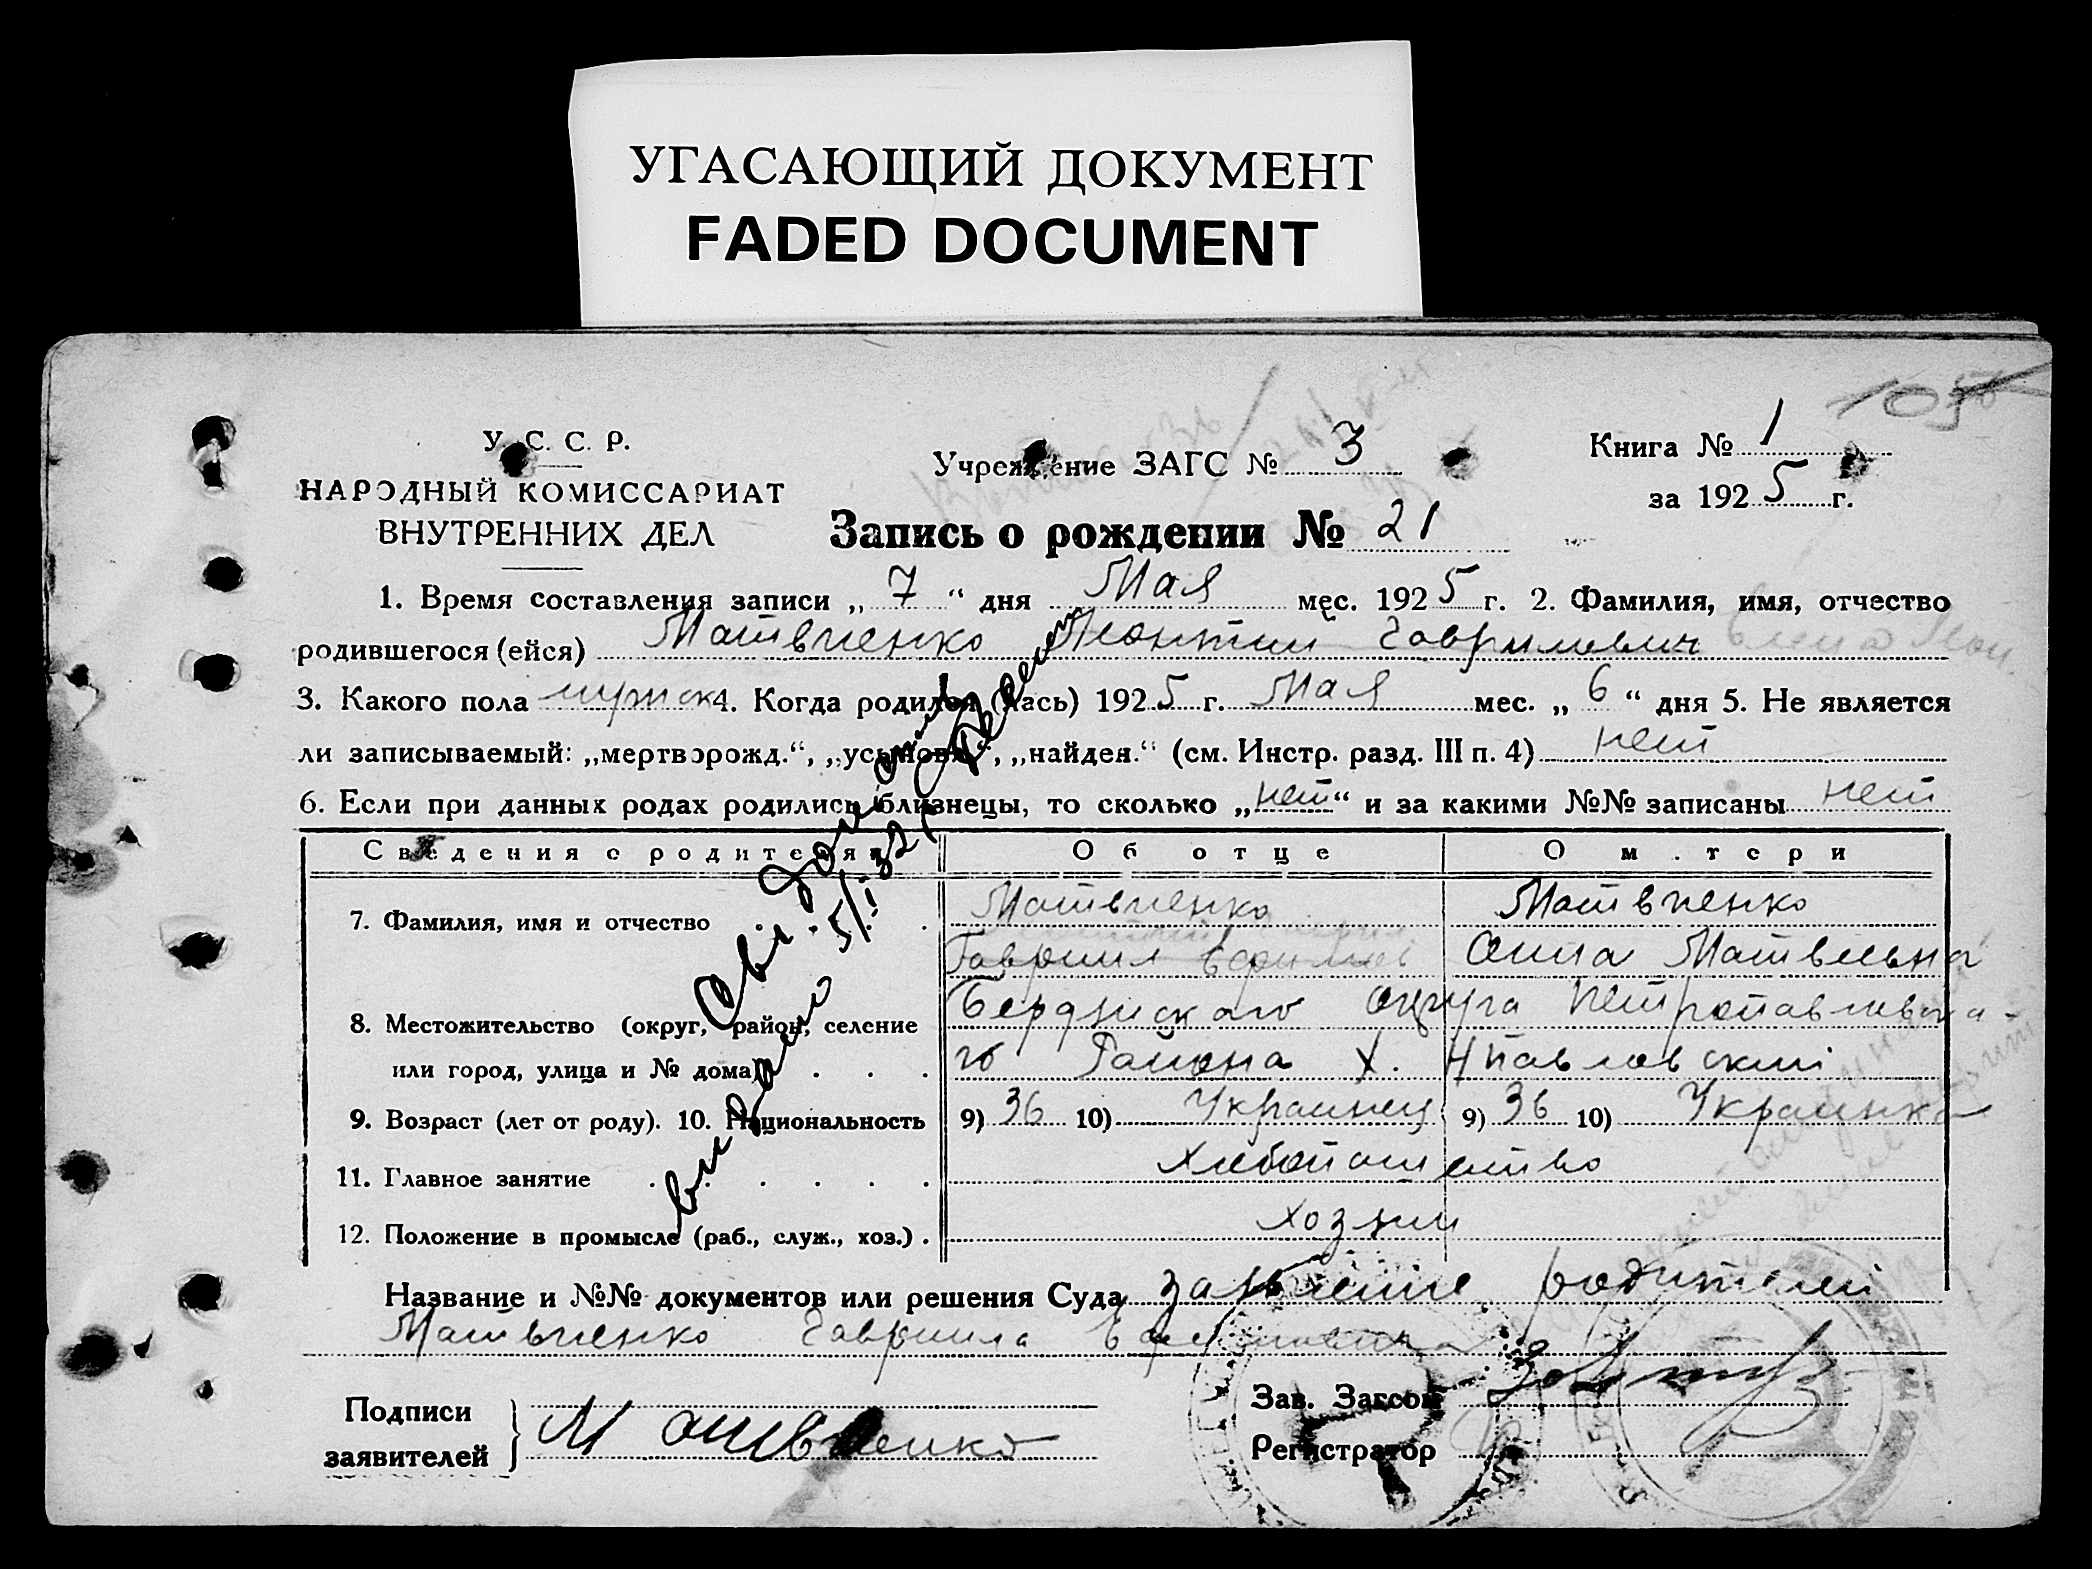 УГАСАЮЩИЙ ДОКУМЕНТ
FADED DOCUMENT
У. С. С. Р.
НАРОДНЫЙ КОМИССАРИАТ
ВНУТРЕННИХ ДЕЛ
Учреждение ЗАГС № 3
Книга № 1
за 1925 г.
105
Запись о рождении № 21
1. Время составления записи „ 7 “ дня Мая мес. 1925 г. 2. Фамилия, имя, отчество
родившегося (ейся) Матвиенко Гаврилович
3. Какого пола мужск 4. Когда родился (лась) 1925 г. Мая мес. „ 6 “ дня 5. Не является
ли записываемый: „мертворожд.“, „усыновл.“, „найден.“ (см. Инстр. разд. III п. 4) нет
6. Если при данных родах родились близнецы, то сколько „нет“ и за какими №№ записаны нет
Сведения о родителях Об отце О матери
7. Фамилия, имя и отчество Матвиенко Матвиенко
Гавриил Анна Матвеевна
8. Местожительство (округ, район, селение Бердянского округа Петропавловска-
или город, улица и № дома) го Района х. Н Павловский
9. Возраст (лет от роду). 10. Национальность 9) 36 10) Украинец 9) 36 10) Украинка
11. Главное занятие Хлебопашество
12. Положение в промысле (раб., служ., хоз.) Хозяин
Название и №№ документов или решения Суда заявление родителей
Матвиенко Гавриила
Подписи
заявителей
Матвиенко
Зав. Загсом
Регистратор
5/I 32